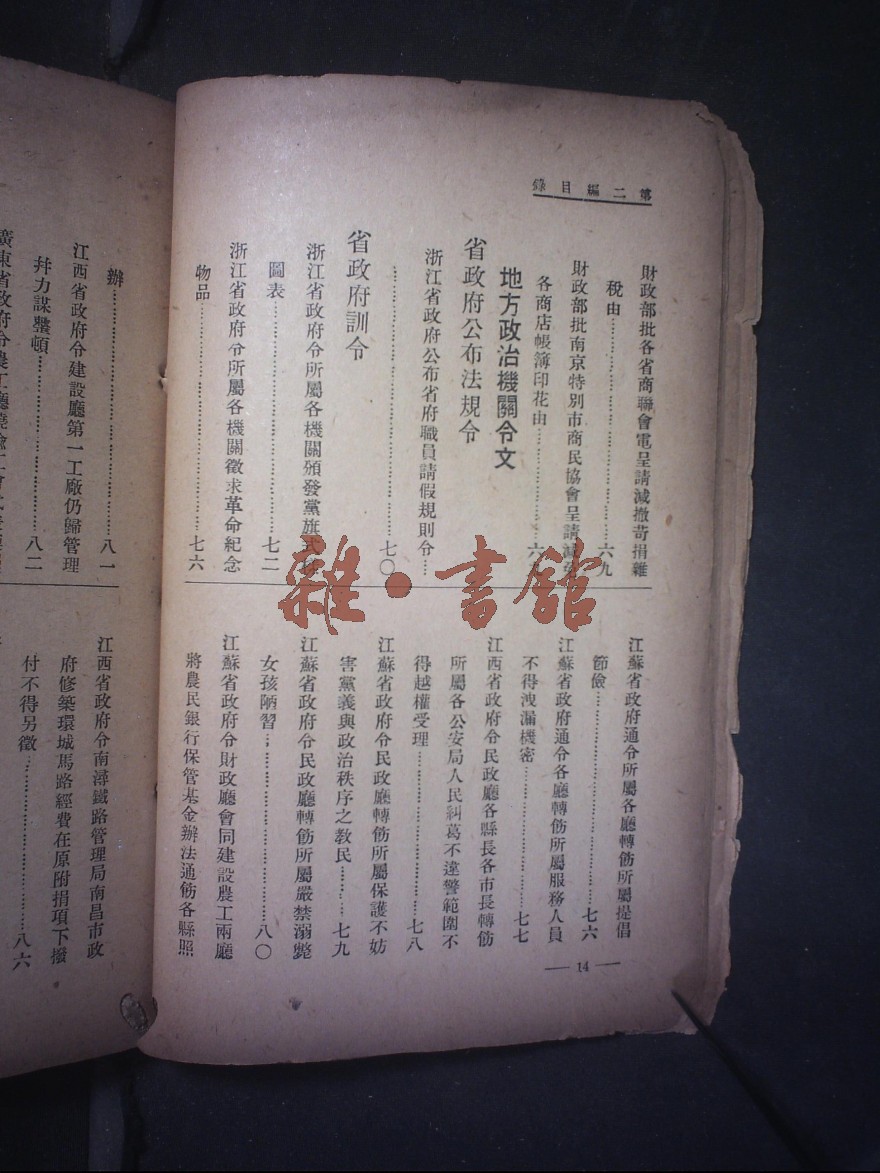 第二編目錄
財政部批各省商聯會電呈請減撤苛捐雜
稅由……六九
財政部批南京特別市商民協會呈請減
各商店帳簿印花由……六
地方政治機關令文
省政府公布法規令
浙江省政府公布省府職員請假規則令……
……七〇
省政府訓令
浙江省政府令所屬各機關頒發黨旗式樣
圖表……七二
浙江省政府令所屬各機關徵求革命紀念
物品……七六
江蘇省政府通令所屬各廳轉飭所屬提倡
節儉……七六
江蘇省政府通令各廳轉飭所屬服務人員
不得洩漏機密……七七
江西省政府令民政廳各縣長各市長轉飭
所屬各公安局人民糾葛不違警範圍不
得越權受理……七八
江蘇省政府令民政廳轉飭所屬保護不妨
害黨義與政治秩序之教民……七九
江蘇省政府令民政廳轉飭所屬嚴禁溺斃
女孩陋習……八〇
江蘇省政府令財政廳會同建設農工兩廳
將農民銀行保管基金辦法通飭各縣照
— 14 —
辦……八一
江西省政府令建設廳第一工廠仍歸管理
幷力謀整頓……八二
廣東省政府令農工廳
江西省政府令南潯鐵路管理局南昌市政
府修築環城馬路經費在原附捐項下撥
付不得另徵……八六
雜·書館